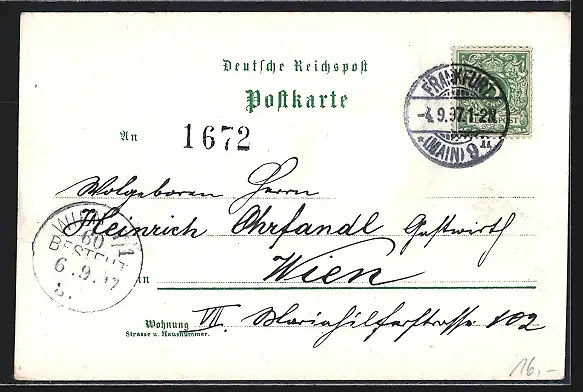 Deutsche Reichspost
Postkarte
FRANKFURT
-4.9.97.1-2N.
*(MAIN)9
REICHSPOST
An
1672
Wolgeboren Herrn
Heinrich Ohrfandl Gastwirth
Wien
WIEN 7/1
60
BESTELLT
6.9.97
in
Wohnung
Strasse u. Hausnummer.
VII. Mariahilferstrasse 102
16,-